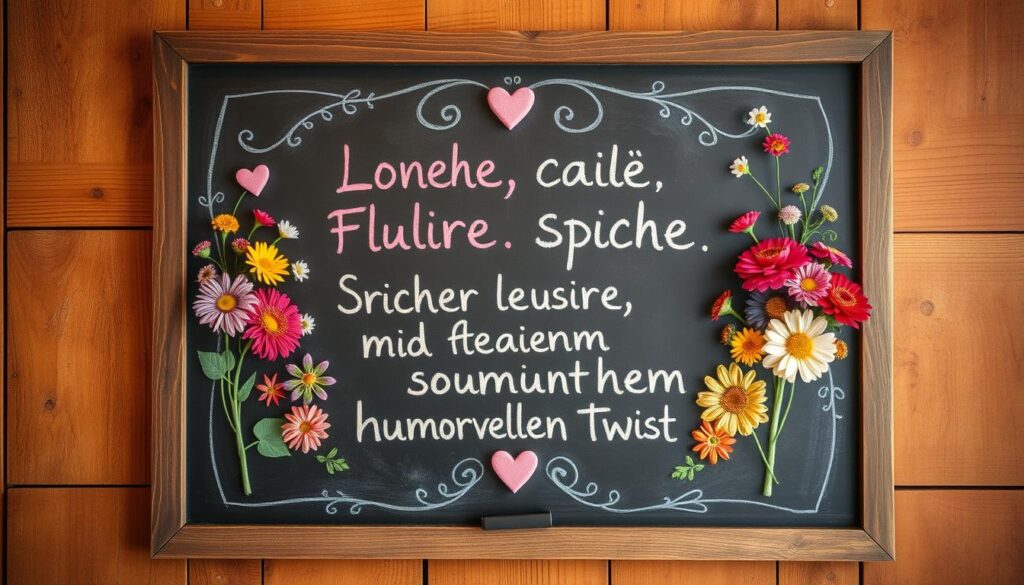 Lonehe, cailë,
Flulire. spiche.
Sricher leusire,
mid fteaienm
soumunt hem
humorvellen Twist